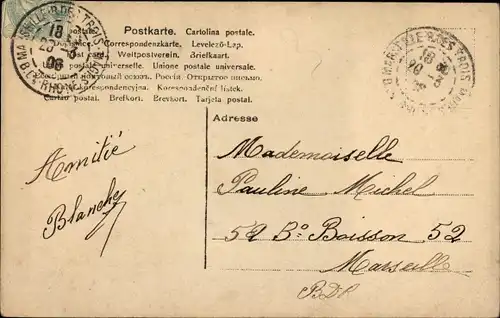 Postkarte. Cartolina postale.
Correspondenzkarte. Levelező-Lap.
Weltpostverein. Briefkaart.
universelle. Unione postale universale.
Россія. Открытое письмо.
Korespondenční lístek.
Cartão postal. Brefkort. Brevkort. Tarjeta postal.
Adresse
Amitié
Blanche
Mademoiselle
Pauline Michel
52 Bo Boisson 52
Marseille
BDR
18